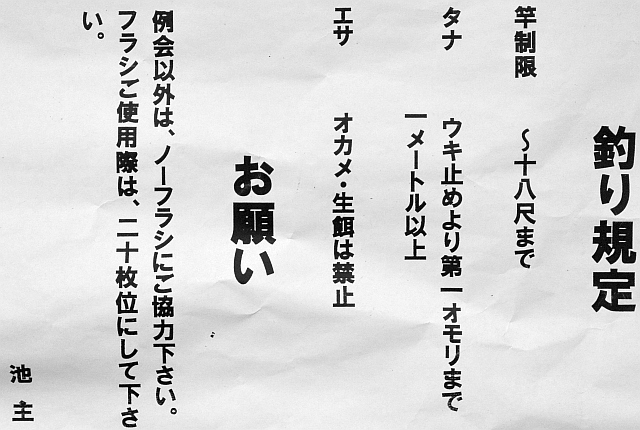 釣り規定
竿制限　～十八尺まで
タナ　ウキ止めより第一オモリまで
一メートル以上
エサ　オカメ・生餌は禁止
お願い
例会以外は、ノーフラシにご協力下さい。
フラシご使用際は、二十枚位にして下さ
い。
池主